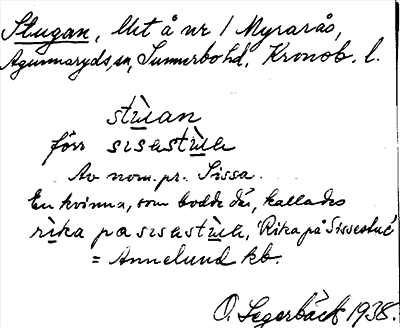 Stugan, lht å nr 1 Myrarås,
Agunnaryds sn, Sunnerbo hd. Kronob. l.
stù̲an
förr sisastù̲a
Av nom. pr. Sissa.
En kvinna, som bodde där, kallades
rì̲ka pa sisastù̲a, 'Rika på Sissestua'
= Annelund kb.
O. Segerbäck 1938.